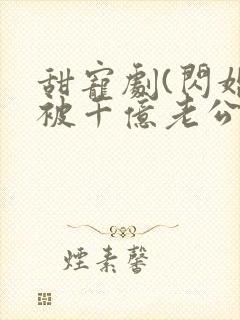 甜寵劇(閃婚
被千億老公
煙素馨